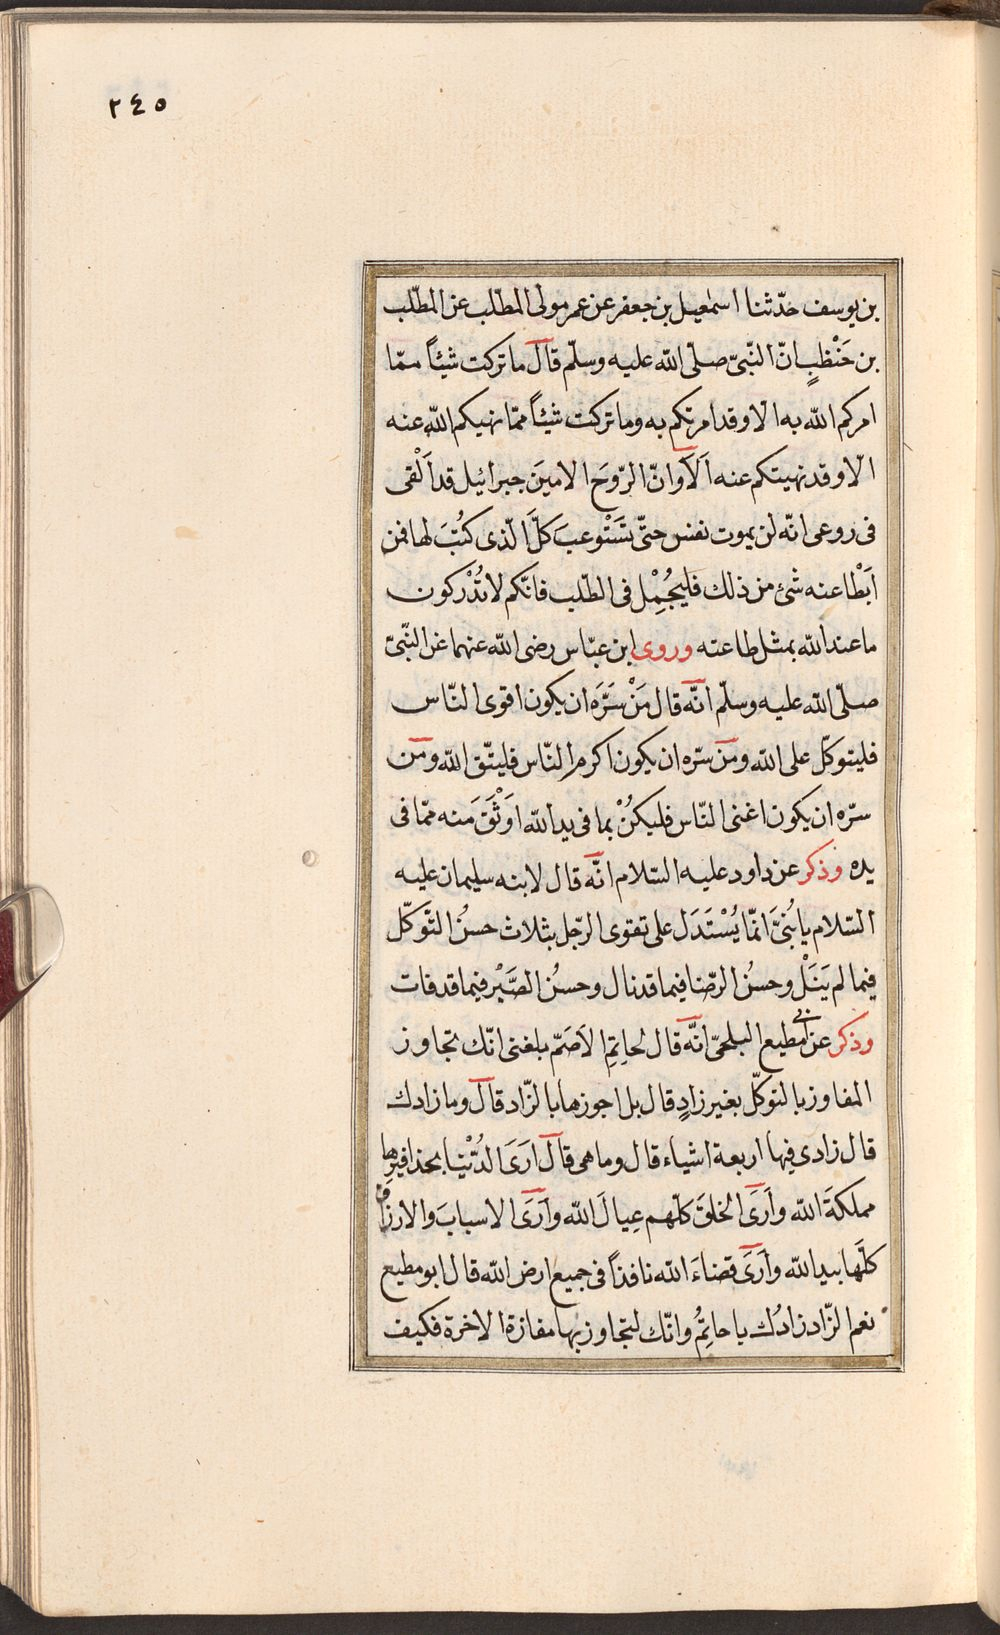 ٢٤٥
بن يوسف حدّثنا اسمٰعيل بن جعفر عن عمر مولى المطّلب عن المطّلب
بن حَنْظبٍ انّ النّبىّ صلّى اللّه عليه وسلّم قال ما تركت شيئاً ممّا
امركم اللّه به الّا وقد امرتكم به وما تركت شيئاً ممّا نهيكم اللّه عنه
الّا وقد نهيتكم عنه اَلاَ وانّ الرّوحَ الامينَ جبرائيل قد اَلْقى
فى روعى انّه لن يموت نفس حتّى تَسْتَوعبَ كلَّ الّذى كُتبَ لها فمن
اَبْطا عنه شئ من ذلك فليُجْمِلْ فى الطّلب فانّكم لا تُدْركون
ما عند اللّه بمثل طاعته وروى ابن عبّاس رضى اللّه عنهما عن النّبىّ
صلّى اللّه عليه وسلّم انّه قال مَنْ سَرَّه ان يكون اقوى النّاس
فليتوكّل على اللّه ومن سرّه ان يكون اكرم النّاس فليتّق اللّه ومن
سرّه ان يكون اغنى النّاس فليكُنْ بما فى يد اللّه اوْثَقَ منه ممّا فى
يده وذكر عن داود عليه السّلام انّه قال لابنه سليمان عليه
السّلام يا بُنىَّ انّما يُسْتَدَل على تقوى الرّجل بثلاث حسنُ التّوكّل
فيما لم يَنَلْ وحسنُ الرّضا فيما قد نال وحسنُ الصَّبْر فيما قد فات
وذكر عن ابى مطيع البلخىّ انّه قال لحاتِمِ الاَصَمّ بلغنى انّك تجاوز
المفاوز بالتوكّل بغير زادٍ قال بل اجوزها بالزّاد قال وما زادك
قال زادى فيها اربعة اشياء قال وما هى قال ارَىَ الدُّنْيا بحذافيرها
مملكةَ اللّه واَرَىَ الخلقَ كلّهم عِيالَ اللّه واَرَىَ الاسبابَ والارزاقَ
كلَّها بيد اللّه واَرَىَ قضاءَ اللّه نافذاً فى جميع ارض اللّه قال ابو مطيع
نعم الزّاد زادُك يا حاتِمُ وانّك لتجاوز بها مفازة الاخرة فكيف